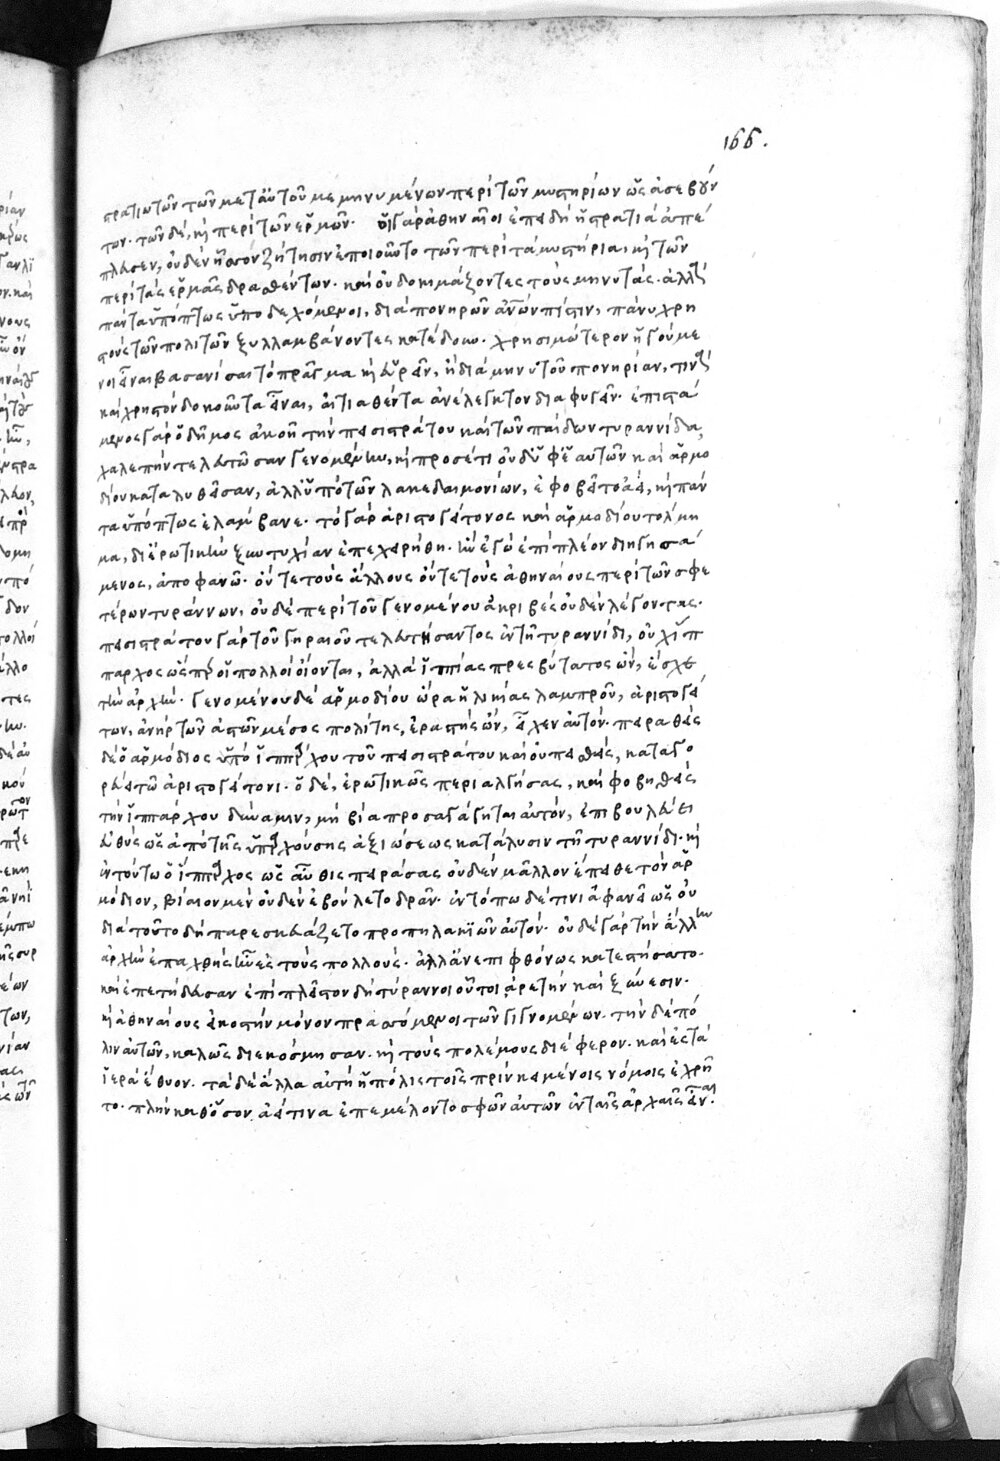 166.
στρατιωτῶν τῶν μετ' αὐτοῦ μεμηνυμένων περὶ τῶν μυστηρίων ὡς ἀσεβούν
των. τῶν δὲ, καὶ περὶ τῶν ἑρμῶν. οἱ γὰρ ἀθηναῖοι ἐπειδὴ ἡ στρατιὰ ἀπέ
πλευσεν, οὐδὲν ἧσσον ζήτησιν ἐποιοῦντο τῶν περὶ τὰ μυστήρια, καὶ τῶν
περὶ τὰς ἑρμᾶς δρασθέντων. καὶ οὐ δοκιμάζοντες τοὺς μηνυτὰς. ἀλλὰ
πάντα ὑπόπτως ὑποδεχόμενοι, διὰ πονηρῶν ἀνθρώπων πίστιν, πάνυ χρη
στοὺς τῶν πολιτῶν ξυλλαμβάνοντες κατέδουν. χρησιμώτερον ἡγούμε
νοι εἶναι βασανίσαι τὸ πρᾶγμα καὶ εὑρεῖν, ἢ διὰ μηνυτοῦ πονηρίαν, τινὰ
καὶ χρηστὸν δοκοῦντα εἶναι, αἰτιαθέντα ἀνέλεγκτον διαφυγεῖν. ἐπιστά
μενος γὰρ ὁ δῆμος ἀκοῇ τὴν πεισιστράτου καὶ τῶν παίδων τυραννίδα,
χαλεπὴν τελευτῶσαν γενομένην, καὶ προσέτι οὐδ' ὑφ' ἑαυτῶν καὶ ἁρμο
δίου καταλυθεῖσαν, ἀλλ' ὑπὸ τῶν λακεδαιμονίων, ἐφοβεῖτο ἀεὶ, καὶ πάν
τα ὑπόπτως ἐλάμβανε. τὸ γὰρ ἀριστογείτονος καὶ ἁρμοδίου τόλμη
μα, δι' ἐρωτικὴν ξυντυχίαν ἐπεχειρήθη. ἣν ἐγὼ ἐπὶ πλέον διηγησά
μενος, ἀποφανῶ. οὔτε τοὺς ἄλλους οὔτε τοὺς ἀθηναίους περὶ τῶν σφε
τέρων τυράννων, οὐδὲ περὶ τοῦ γενομένου ἀκριβὲς οὐδὲν λέγοντας.
πεισιστράτου γὰρ τοῦ γηραιοῦ τελευτήσαντος ἐν τῇ τυραννίδι, οὐχ ἵπ
παρχος ὥσπερ οἱ πολλοὶ οἴονται, ἀλλὰ ἱππίας πρεσβύτατος ὢν, ἔσχε
τὴν ἀρχήν. γενομένου δὲ ἁρμοδίου ὥρᾳ ἡλικίας λαμπροῦ, ἀριστογεί
των, ἀνὴρ τῶν ἀστῶν μέσος πολίτης, ἐραστὴς ὢν, εἶχεν αὐτόν. πειραθεὶς
δὲ ὁ ἁρμόδιος ὑπὸ ἱππάρχου τοῦ πεισιστράτου καὶ οὐ πεισθεὶς, καταγο
ρεύει τῷ ἀριστογείτονι. ὁ δὲ, ἐρωτικῶς περιαλγήσας, καὶ φοβηθεὶς
τὴν ἱππάρχου δύναμιν, μὴ βίᾳ προσαγάγηται αὐτόν, ἐπιβουλεύει
εὐθὺς ὡς ἀπὸ τῆς ὑπαρχούσης ἀξιώσεως κατάλυσιν τῇ τυραννίδι. καὶ
ἐν τούτῳ ὁ ἵππαρχος ὡς αὖθις πειράσας οὐδὲν μᾶλλον ἔπειθε τὸν ἁρ
μόδιον, βίαιον μὲν οὐδὲν ἐβούλετο δρᾶν. ἐν τόπῳ δέ τινι ἀφανεῖ ὡς οὐ
διὰ τοῦτο δὴ παρεσκευάζετο προπηλακιῶν αὐτόν. οὐδὲ γὰρ τὴν ἄλλην
ἀρχὴν ἐπαχθὴς ἦν ἐς τοὺς πολλούς. ἀλλ' ἀνεπιφθόνως κατεστήσατο.
καὶ ἐπετήδευσαν ἐπὶ πλεῖστον δὴ τύραννοι οὗτοι ἀρετὴν καὶ ξύνεσιν.
καὶ ἀθηναίους εἰκοστὴν μόνον πρασσόμενοι τῶν γιγνομένων. τήν δὲ πό
λιν αὐτῶν, καλῶς διεκόσμησαν. καὶ τοὺς πολέμους διέφερον. καὶ ἐς τὰ
ἱερὰ ἔθυον. τὰ δὲ ἄλλα αὐτὴ ἡ πόλις τοῖς πρὶν κειμένοις νόμοις ἐχρῆ
το. πλὴν καθ' ὅσον ἀεί τινα ἐπεμέλοντο σφῶν αὐτῶν ἐν ταῖς ἀρχαῖς εἶναι.